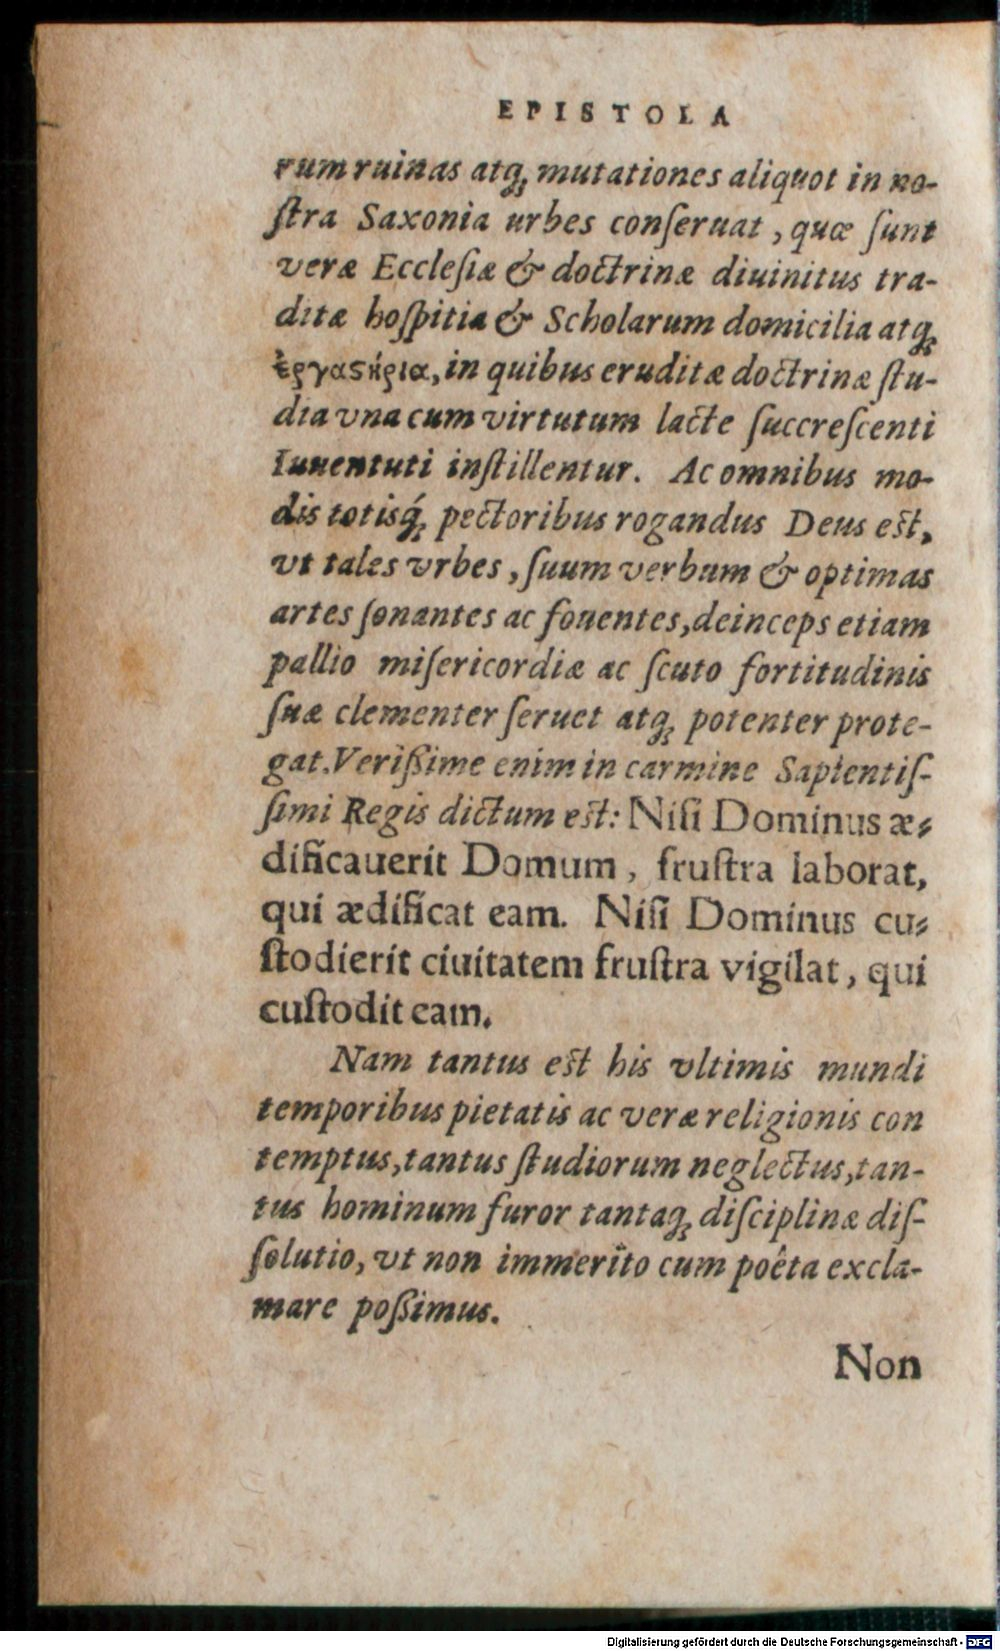 EPISTOLA
rum ruinas atq; mutationes aliquot in no-
ſtra Saxonia urbes conſeruat, quæ ſunt
veræ Eccleſiæ & doctrinæ diuinitus tra-
ditæ hoſpitia & Scholarum domicilia atq;
ἐργαϛήρια, in quibus eruditæ doctrinæ ſtu-
dia vna cum virtutum lacte ſuccreſcenti
Iuuentuti inſtillentur. Ac omnibus mo-
dis totisq́; pectoribus rogandus Deus est,
vt tales vrbes, ſuum verbum & optimas
artes ſonantes ac fouentes, deinceps etiam
pallio miſericordiæ ac ſcuto fortitudinis
ſuæ clementer ſeruet atq; potenter prote-
gat. Verißime enim in carmine Sapientiſ-
ſimi Regis dictum est: Niſi Dominus æ-
dificauerit Domum, fruſtra laborat,
qui ædificat eam. Niſi Dominus cu-
ſtodierit ciuitatem fruſtra vigilat, qui
cuſtodit eam.
Nam tantus est his vltimis mundi
temporibus pietatis ac veræ religionis con
temptus, tantus ſtudiorum neglectus, tan-
tus hominum furor tantaq; diſciplinæ diſ-
ſolutio, vt non immeritò cum poêta excla-
mare poßimus.
Non
Digitalisierung gefördert durch die Deutsche Forschungsgemeinschaft - DFG